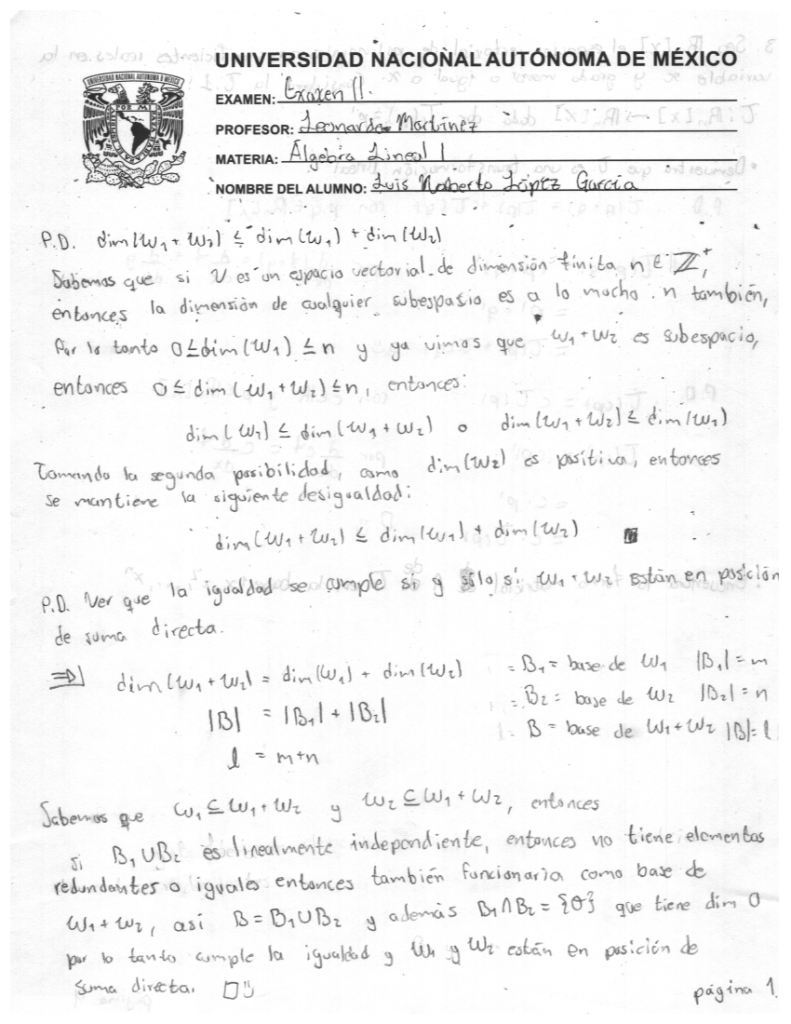 UNIVERSIDAD NACIONAL AUTÓNOMA DE MÉXICO
EXAMEN: Examen II.
PROFESOR: Leonardo Martínez
MATERIA: Álgebra Lineal I
NOMBRE DEL ALUMNO: Luis Norberto López García
P.D. dim(W₁ + W₂) ≤ dim(W₁) + dim(W₂)
Sabemos que si V es un espacio vectorial de dimensión finita n ∈ ℤ⁺,
entonces la dimensión de cualquier subespasio es a lo mucho n también,
Por lo tanto 0 ≤ dim(W₁) ≤ n y ya vimos que W₁ + W₂ es subespacio,
entonces 0 ≤ dim(W₁ + W₂) ≤ n, entonces:
dim(W₁) ≤ dim(W₁ + W₂) o dim(W₁ + W₂) ≤ dim(W₁)
Tomando la segunda posibilidad, como dim(W₂) es positiva, entonces
se mantiene la siguiente desigualdad:
dim(W₁ + W₂) ≤ dim(W₁) + dim(W₂) ■
P.D. Ver que la igualdad se cumple si y sólo si W₁ + W₂ están en posición
de suma directa.
⇒| dim(W₁ + W₂) = dim(W₁) + dim(W₂) = B₁ = base de W₁ |B₁| = m
|B| = |B₁| + |B₂| = B₂ = base de W₂ |B₂| = n
l = m+n B = base de W₁ + W₂ |B| = l
Sabemos que W₁ ⊆ W₁ + W₂ y W₂ ⊆ W₁ + W₂, entonces
si B₁ ∪ B₂ es linealmente independiente, entonces no tiene elementos
redundantes o iguales entonces también funcionaria como base de
W₁ + W₂, así B = B₁ ∪ B₂ y además B₁ ∩ B₂ = {θ} que tiene dim 0
por lo tanto cumple la igualdad y W₁ y W₂ están en posición de
suma directa. □
página 1